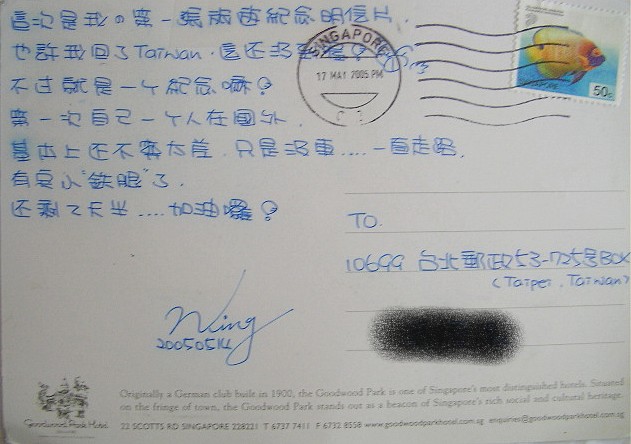 這次是我の第一張旅遊紀念明信片.
也許我回了Taiwan.這还沒
不过就是一个紀念嘛?
第一次自己一个人在國外.
基本上还不算太差.只是沒車....一直走路.
有莫小"鉄腿"了.
还剩2天半....加油囉?
Wing
20050514
SINGAPORE
17 MAY 2005 PM
SINGAPORE
50c
TO.
10699 台北郵政53-725号BOX
(Taipei, Taiwan)
Goodwood Park Hotel
Originally a German club built in 1900, the Goodwood Park is one of Singapore's most distinguished hotels. Situated
on the fringe of town, the Goodwood Park stands out as a beacon of Singapore's rich social and cultural heritage.
22 SCOTTS RD SINGAPORE 228221 T 6737 7411 F 6732 8558 www.goodwoodparkhotel.com.sg enquiries@goodwoodparkhotel.com.sg